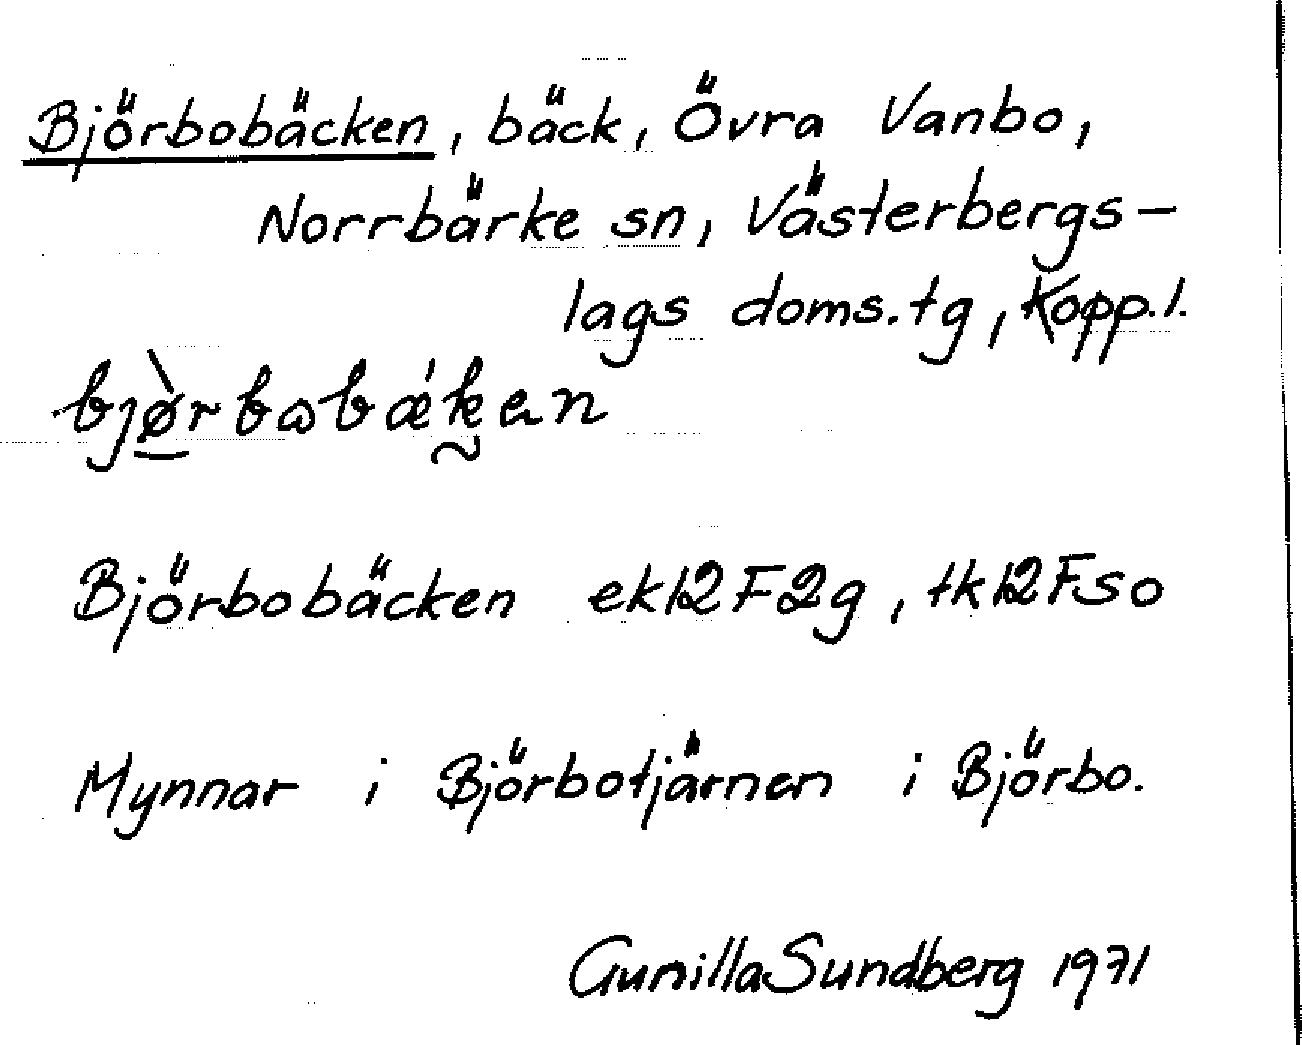 Björbobäcken, bäck, Övra Vanbo,
Norrbärke sn, Västerbergs-
lags doms.tg, Kopp.l.
bjø̀rbωbǽken
Björbobäcken ek12F2g, tk12Fso
Mynnar i Björbotjärnen i Björbo.
Gunilla Sundberg 1971